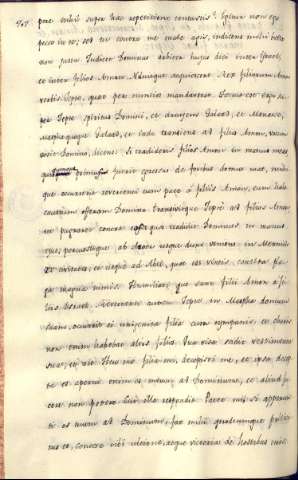 pace nisus super hac repetitione conatus? Igitur non ego
pecco in te; sed tu contra me male agis, indicens mihi bella
non justa. Judicet Dominus arbiter hujus diei inter Israel,
et inter filios Ammon. Noluitque acquiescere Rex filiorum Ammon
verbis Jepte, quae per nuntios mandaverat. Factus est ergo su-
per Jepte spiritus Domini, et circuiens Galaad, et Manasse,
Maspha quoque Galaad, et inde transiens ad filios Ammon, vovit
votum Domino, dicens: Si tradideris filios Ammon in manus meas
quicumque primus fuerit egressus de foribus domus meae, mihi-
que occurrerit revertenti cum pace a filiis Ammon, eum holo-
caustum offeram Domino. Transivitque Jepte ad filios Ammon
ut pugnaret contra eos: quos tradidit Dominus in manus
ejus, percussitque ab Aroer usque dum veniret in Mennith
civitates, et usque ad Abel, quae est vineis consita, pla-
ga magna nimis: Humiliatique sunt filii Ammon a fi-
liis Israel. Revertente autem Jepte in Maspha domum
suam, occurrit ei unigenita filia cum tympanis, et choris
non enim habebat alios filios. Qua visa scidit vestimenta
sua, et ait Heu me filia mi, decepisti me, et ipsa decep-
ta es aperui enim os meum ad Dominum, et aliud fa-
cere non potero. Cui illa respondit Pater mi si aperuis-
ti os tuum ad Dominum, fac mihi quodcumque pollici-
tus es, concessa tibi ultione, atque victoria de hostibus tuis.